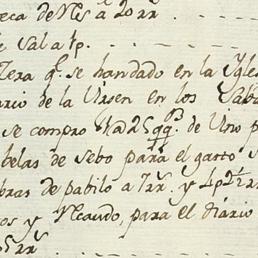 eca de Nes a 20 rr
e Sal a 1p.
Zera q.e se han dado en la Igle
ario de la Virsen en los Saba
se compro de Vino p
belas de sebo para el gasto s
bras de pabilo a 7 rr. y 4p 2½ rr
os y recaudo, para el diario
5 rr